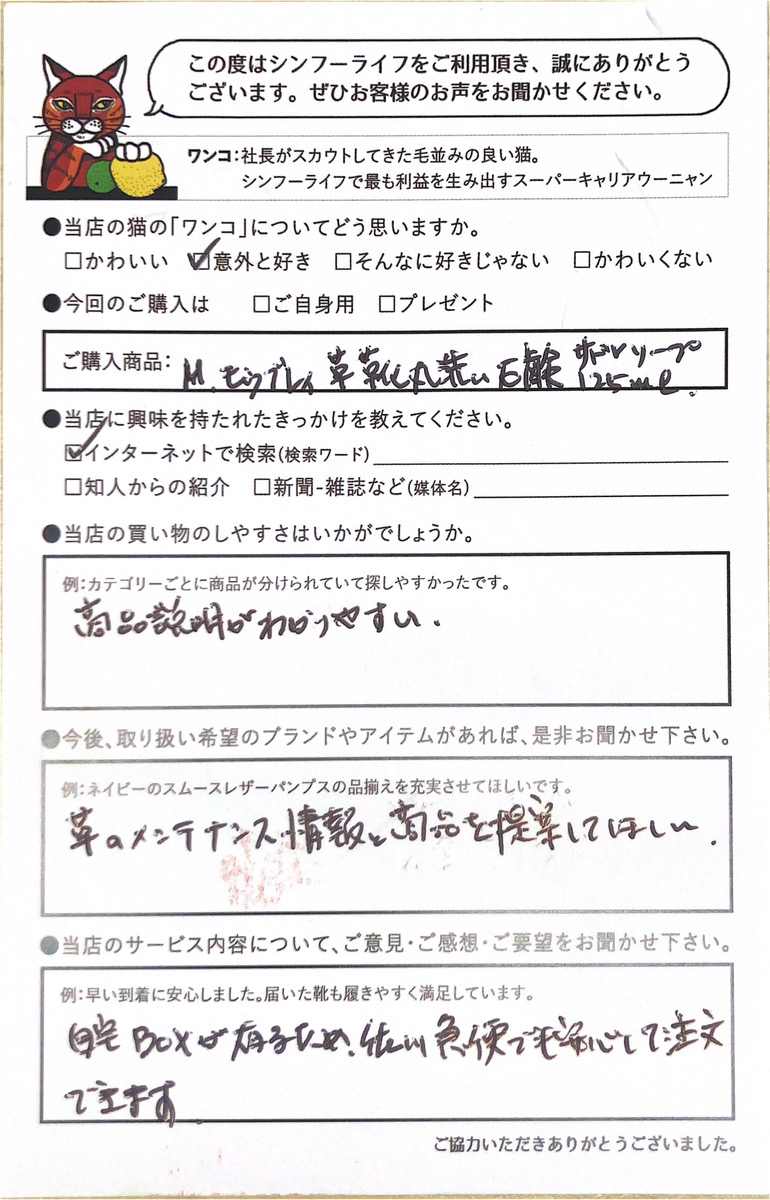 この度はシンフーライフをご利用頂き、誠にありがとう
ございます。ぜひお客様のお声をお聞かせください。
ワンコ：社長がスカウトしてきた毛並みの良い猫。
シンフーライフで最も利益を生み出すスーパーキャリアウーニャン
●当店の猫の「ワンコ」についてどう思いますか。
□かわいい ☑意外と好き □そんなに好きじゃない □かわいくない
●今回のご購入は □ご自身用 □プレゼント
ご購入商品： M.モゥブレィ 革靴丸洗い石鹸 サドルソープ
125ml.
●当店に興味を持たれたきっかけを教えてください。
☑インターネットで検索(検索ワード)
□知人からの紹介 □新聞-雑誌など(媒体名)
●当店の買い物のしやすさはいかがでしょうか。
例：カテゴリーごとに商品が分けられていて探しやすかったです。
商品説明がわかりやすい.
●今後、取り扱い希望のブランドやアイテムがあれば、是非お聞かせ下さい。
例：ネイビーのスムースレザーパンプスの品揃えを充実させてほしいです。
革のメンテナンス情報と商品を提案してほしい.
●当店のサービス内容について、ご意見・ご感想・ご要望をお聞かせ下さい。
例：早い到着に安心しました。届いた靴も履きやすく満足しています。
自宅BOXが有るため、佐川急便でも安心して注文
できます
ご協力いただきありがとうございました。